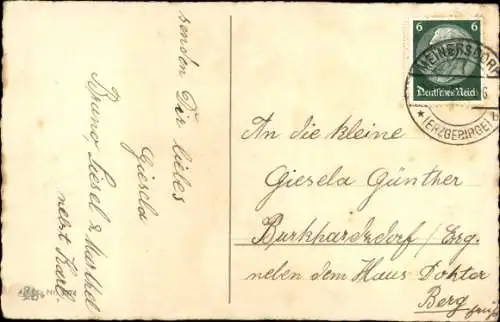 senden Dir liebes
Giesela
Bruno, Liesel & Marthel
nebst Karl.
6 6
Deutsches Reich
MEINERSDORF
* (ERZGEBIRGE) b
An die kleine
Giesela Günther
Burkhardsdorf/Erg.
neben dem Haus Doktor
Berg